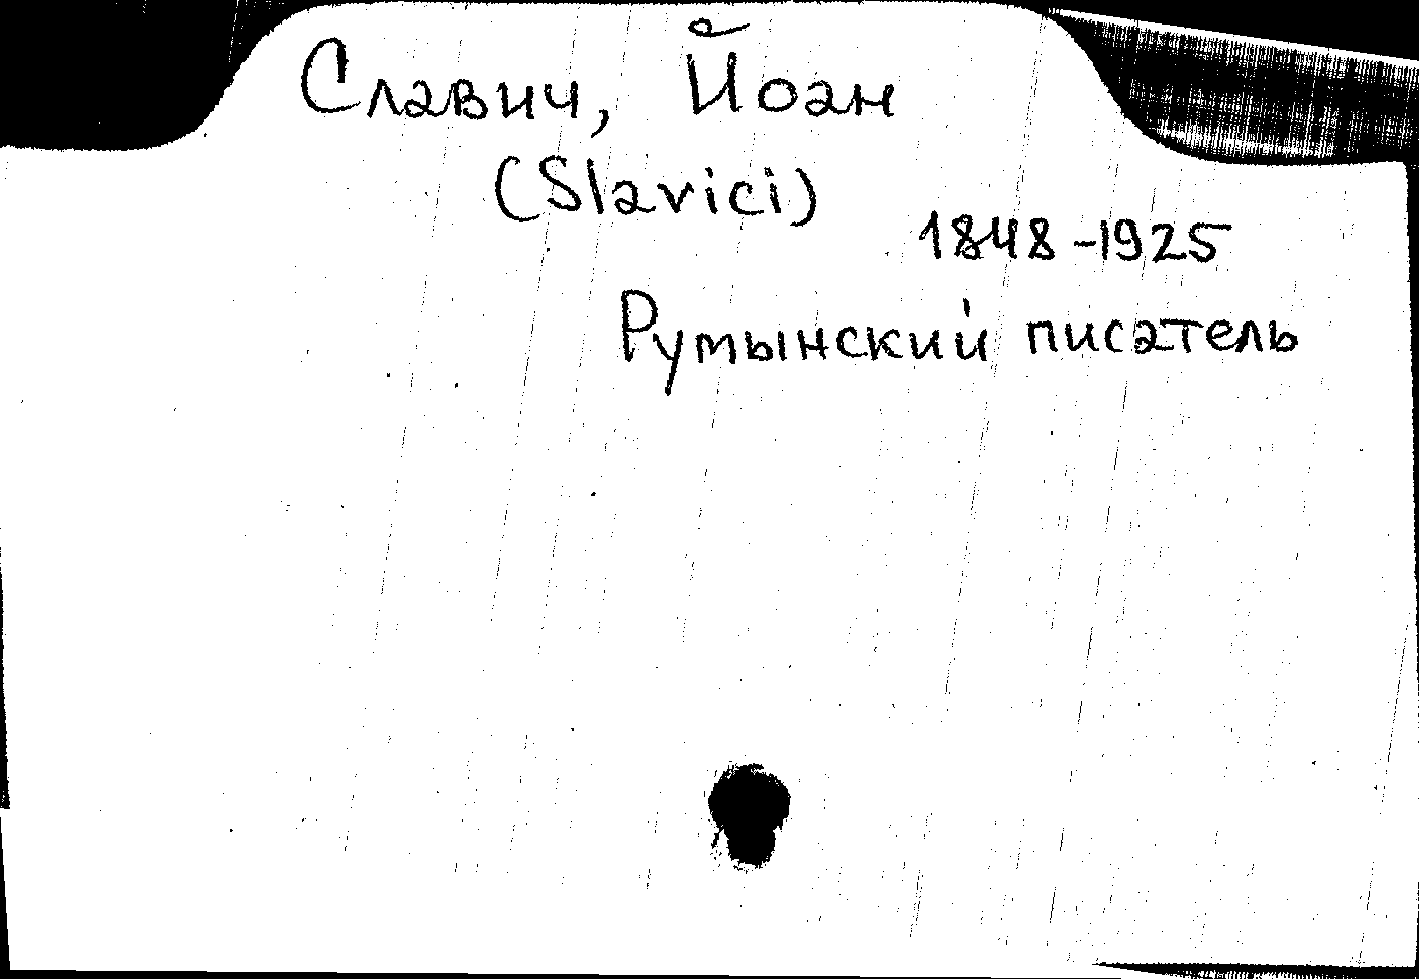 Славич, Йоан
(Slavici)
1848-1925
Румынский писатель